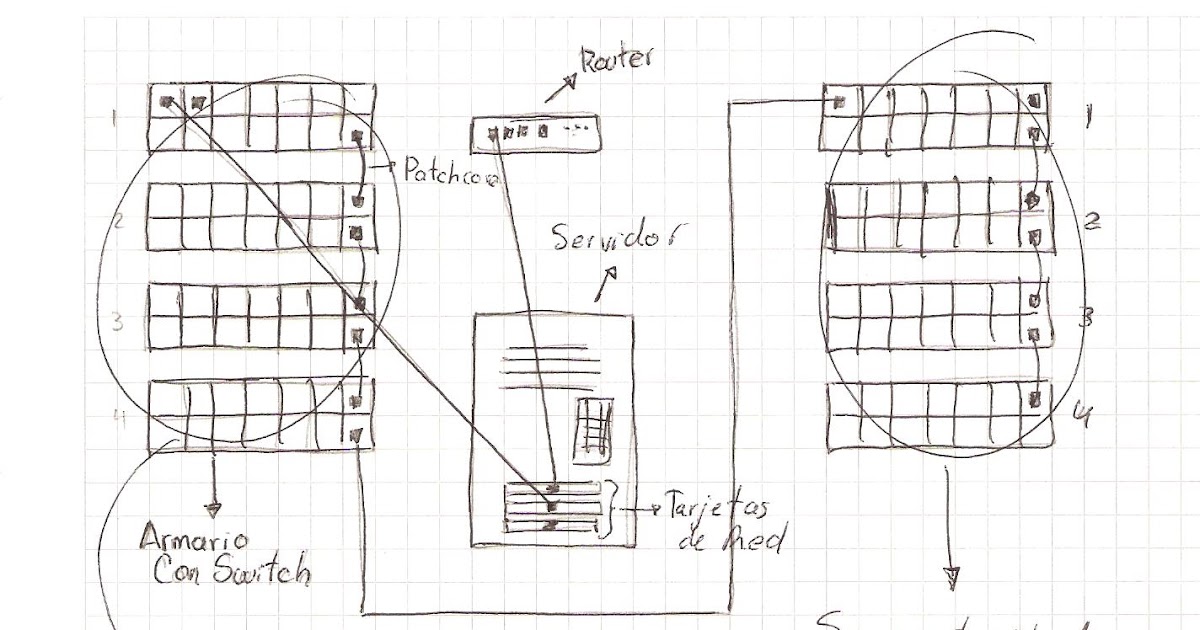 Router
1
1
Patchcord
2
2
Servidor
3
3
4
4
Tarjetas
de Red
Armario
Con Switch